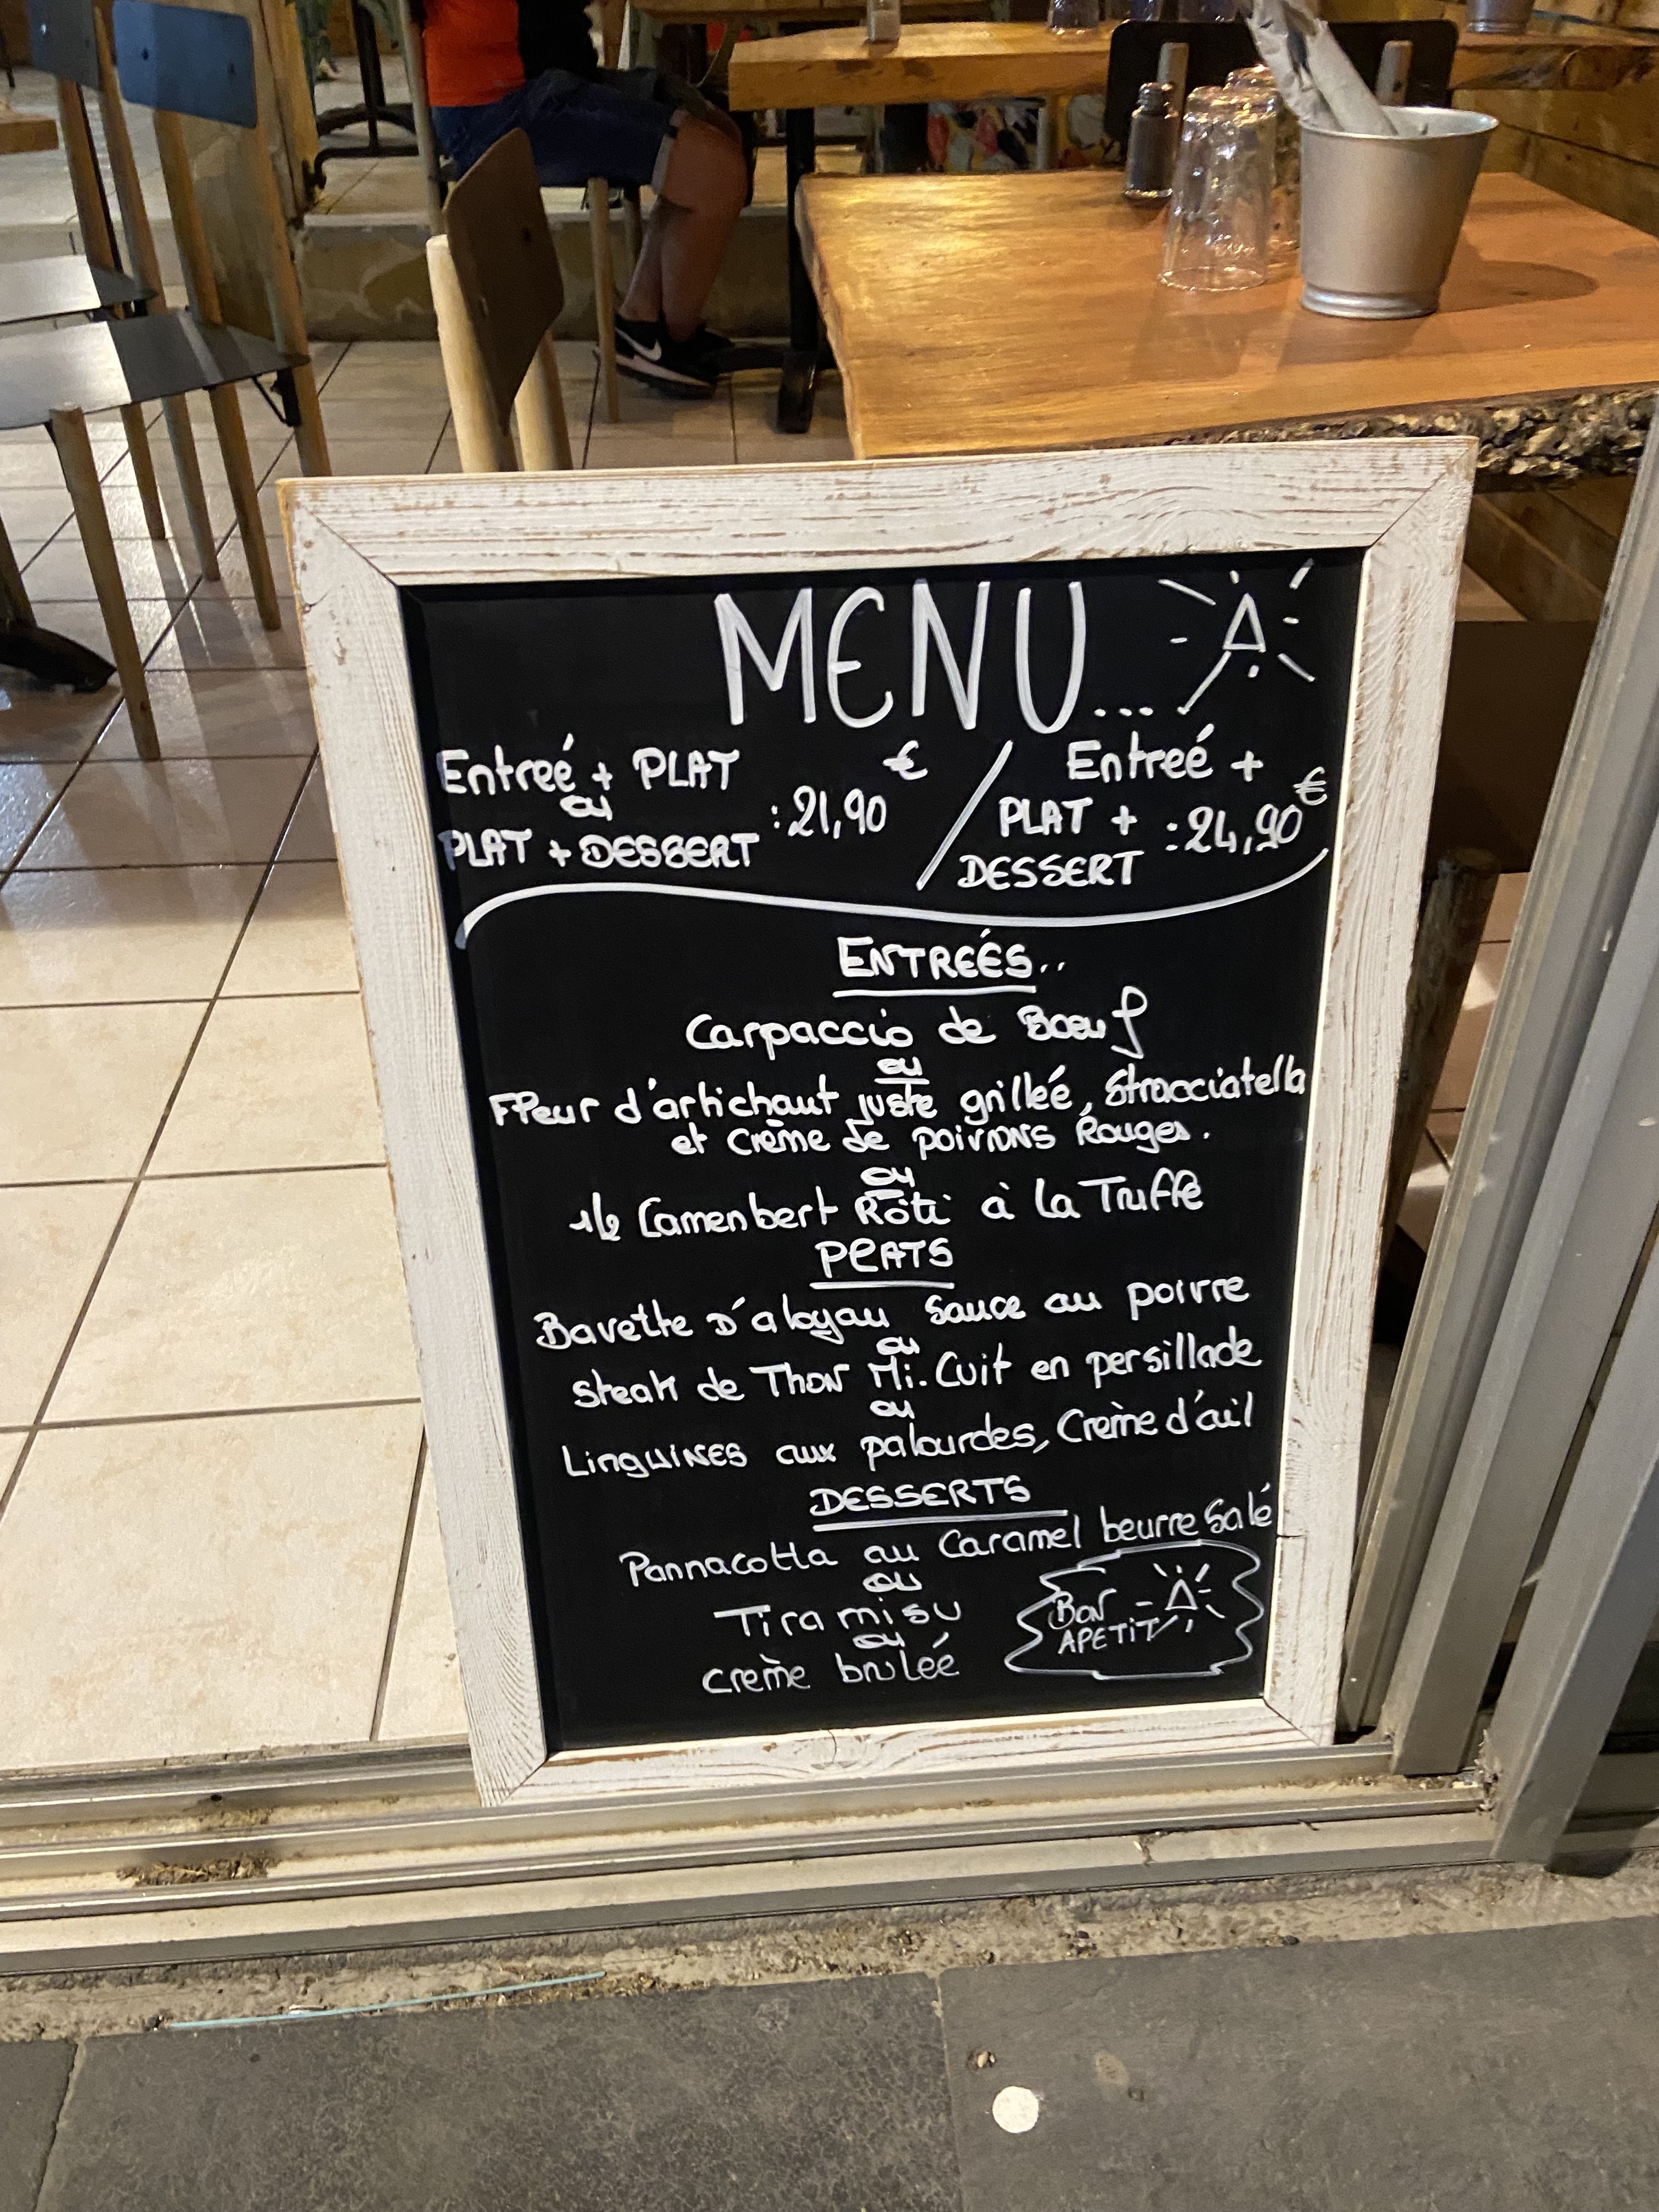 MENU...
Entreé + PLAT
ou
PLAT + DESSERT
: 21,90 €
/
Entreé +
PLAT +
DESSERT
: 24,90 €
ENTREÉS..
Carpaccio de Bœuf
ou
Fleur d'artichaut juste grilleé, Stracciatella
et Crème de poivrons Rouges.
ou
Camenbert Rôti à la Truffe
PLATS
Bavette D'aloyau Sauce au poivre
ou
Steak de Thon Mi-Cuit en persillade
ou
Linguines aux palourdes, Crème d'ail
DESSERTS
Pannacotta au Caramel beurre Salé
ou
Tiramisu
ou
crème bruleé
BON
APETIT